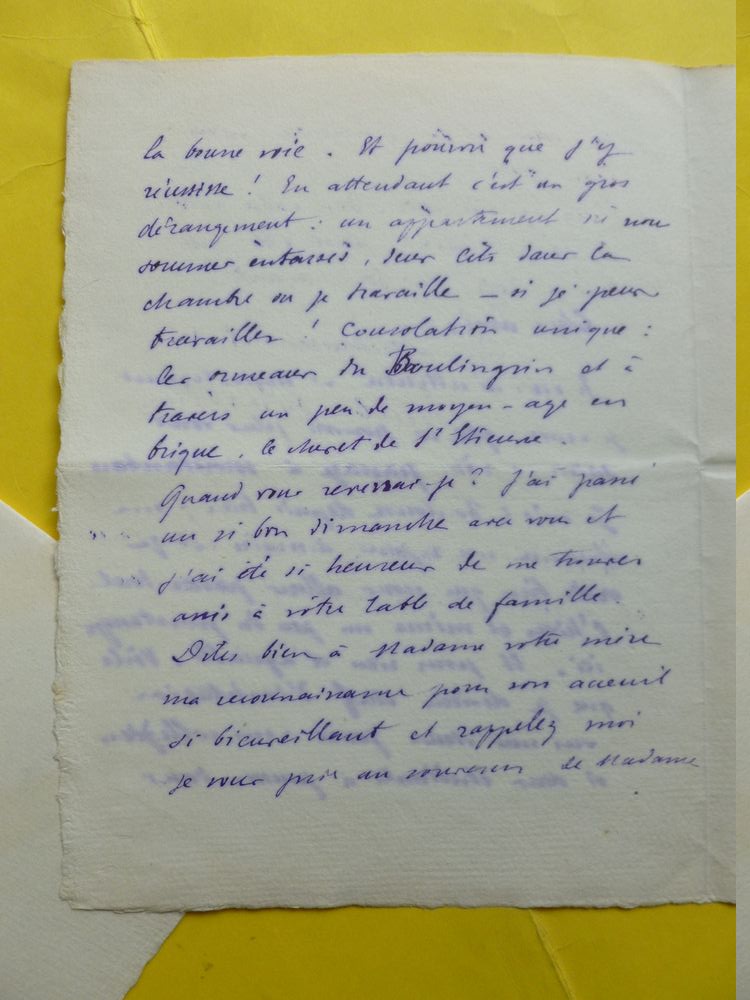 la bonne voie. Et pourvu que j'y
réussisse ! En attendant c'est un gros
dérangement : un appartement où nous
sommes entassés, deux lits dans la
chambre où je travaille – si je peux
travailler ! Consolation unique :
les ormeaux du Boulingrin et à
travers un peu de moyen-age en
brique, le chevet de St Etienne.
Quand vous reverrai-je ? J'ai passé
un si bon dimanche avec vous et
j'ai été si heureux de me trouver
assis à votre table de famille.
Dites bien à Madame votre mère
ma reconnaissance pour son accueil
si bienveillant et rappelez moi
je vous prie au souvenir de Madame